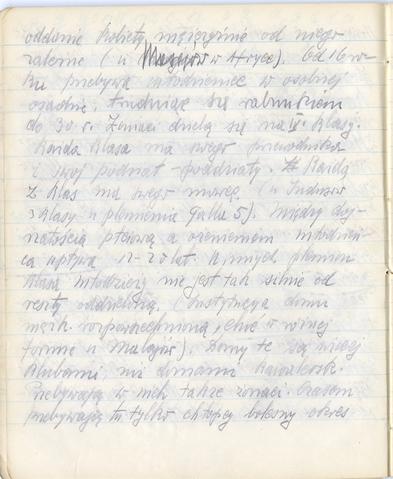 oddanie kobiety mężczyźnie od niego
zależne (u Masajów w Afryce). Od 16 ro-
ku przebywa młodzieniec w osobnej
osadzie, trudniąc się rabunkiem
do 30 r. Żonaci dzielą się na IV klasy.
Każda klasa ma swego przewodnika
i swój podział - pododdziały. Każda
z klas ma swego
3 klasy u plemienia Galla 5). Między doj-
rzałością płciową a ożenieniem młodzień-
ca upływa 12-20 lat. U innych plemion
klasa młodzieży nie jest tak silnie od
reszty oddzielona, (instytucja domu
męzk. rozpowszechniona, choć w innej
formie u Malajów). Domy te są więcej
klubami, niż domami kawalersk.
Przebywają w nich także żonaci. Czasem
przebywają tu tylko chłopcy pewny okres